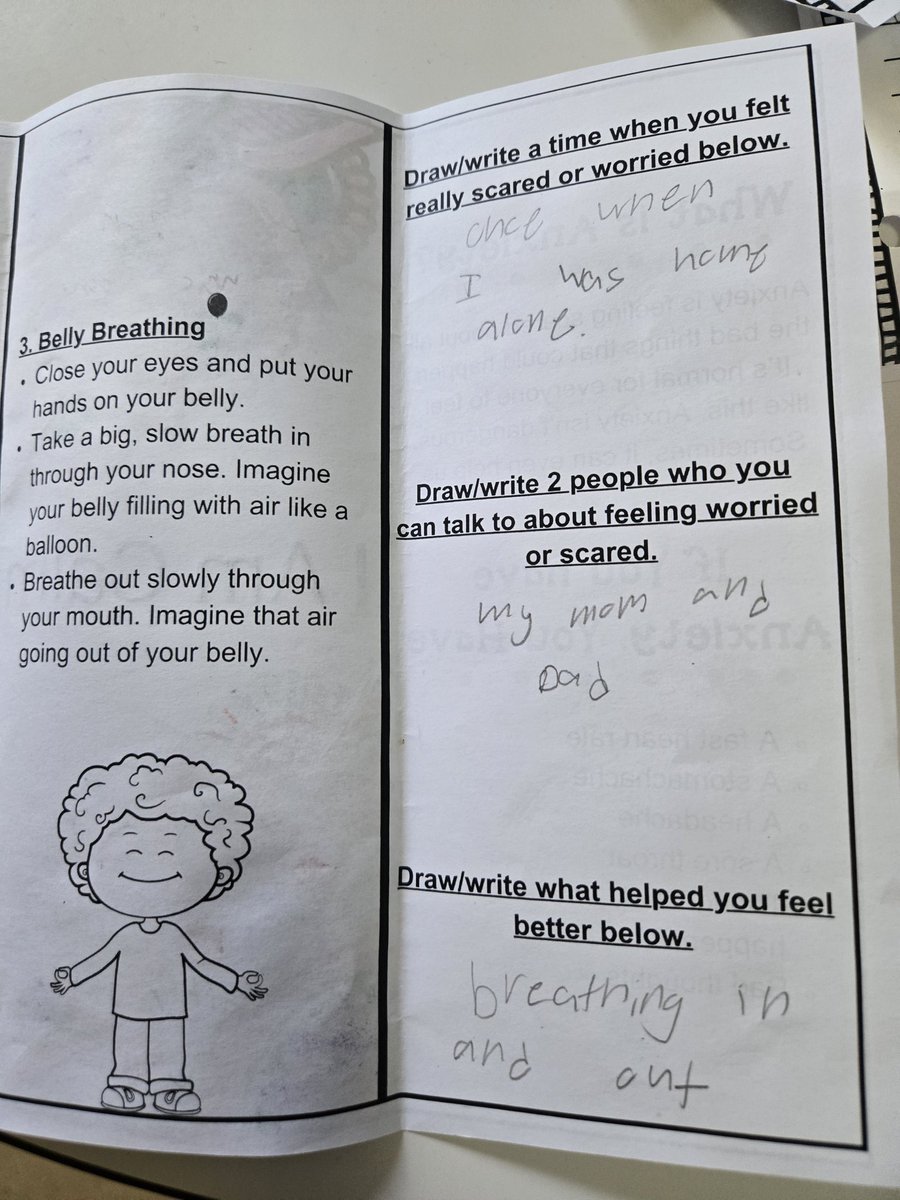 3. Belly Breathing
. Close your eyes and put your
hands on your belly.
. Take a big, slow breath in
through your nose. Imagine
your belly filling with air like a
balloon.
. Breathe out slowly through
your mouth. Imagine that air
going out of your belly.
Draw/write a time when you felt
really scared or worried below.
once when
I was home
alone.
Draw/write 2 people who you
can talk to about feeling worried
or scared.
my mom and
Dad
Draw/write what helped you feel
better below.
breathing in
and out